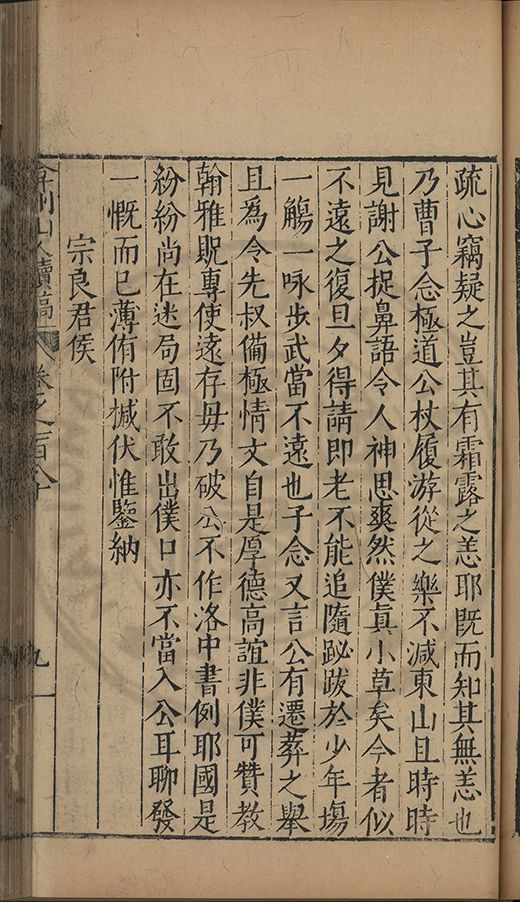 疏心竊疑之豈其有霜露之恙耶既而知其無恙也
乃曹子念極道公杖履游從之樂不減東山且時時
見謝公捉鼻語令人神思爽然僕真小草矣今者似
不遠之復旦夕得請即老不能追隨跐跋於少年塲
一觴一咏步武當不遠也子念又言公有遷葬之舉
且爲令先叔備極情文自是厚德高誼非僕可贊教
翰雅貺專使遠存毋乃破公不作洛中書例耶國是
紛紛尚在迷局固不敢出僕口亦不當入公耳聊發
一慨而已薄侑附椷伏惟鑒納
宗良君侯
弇州山人續稿 卷之一百八十
九